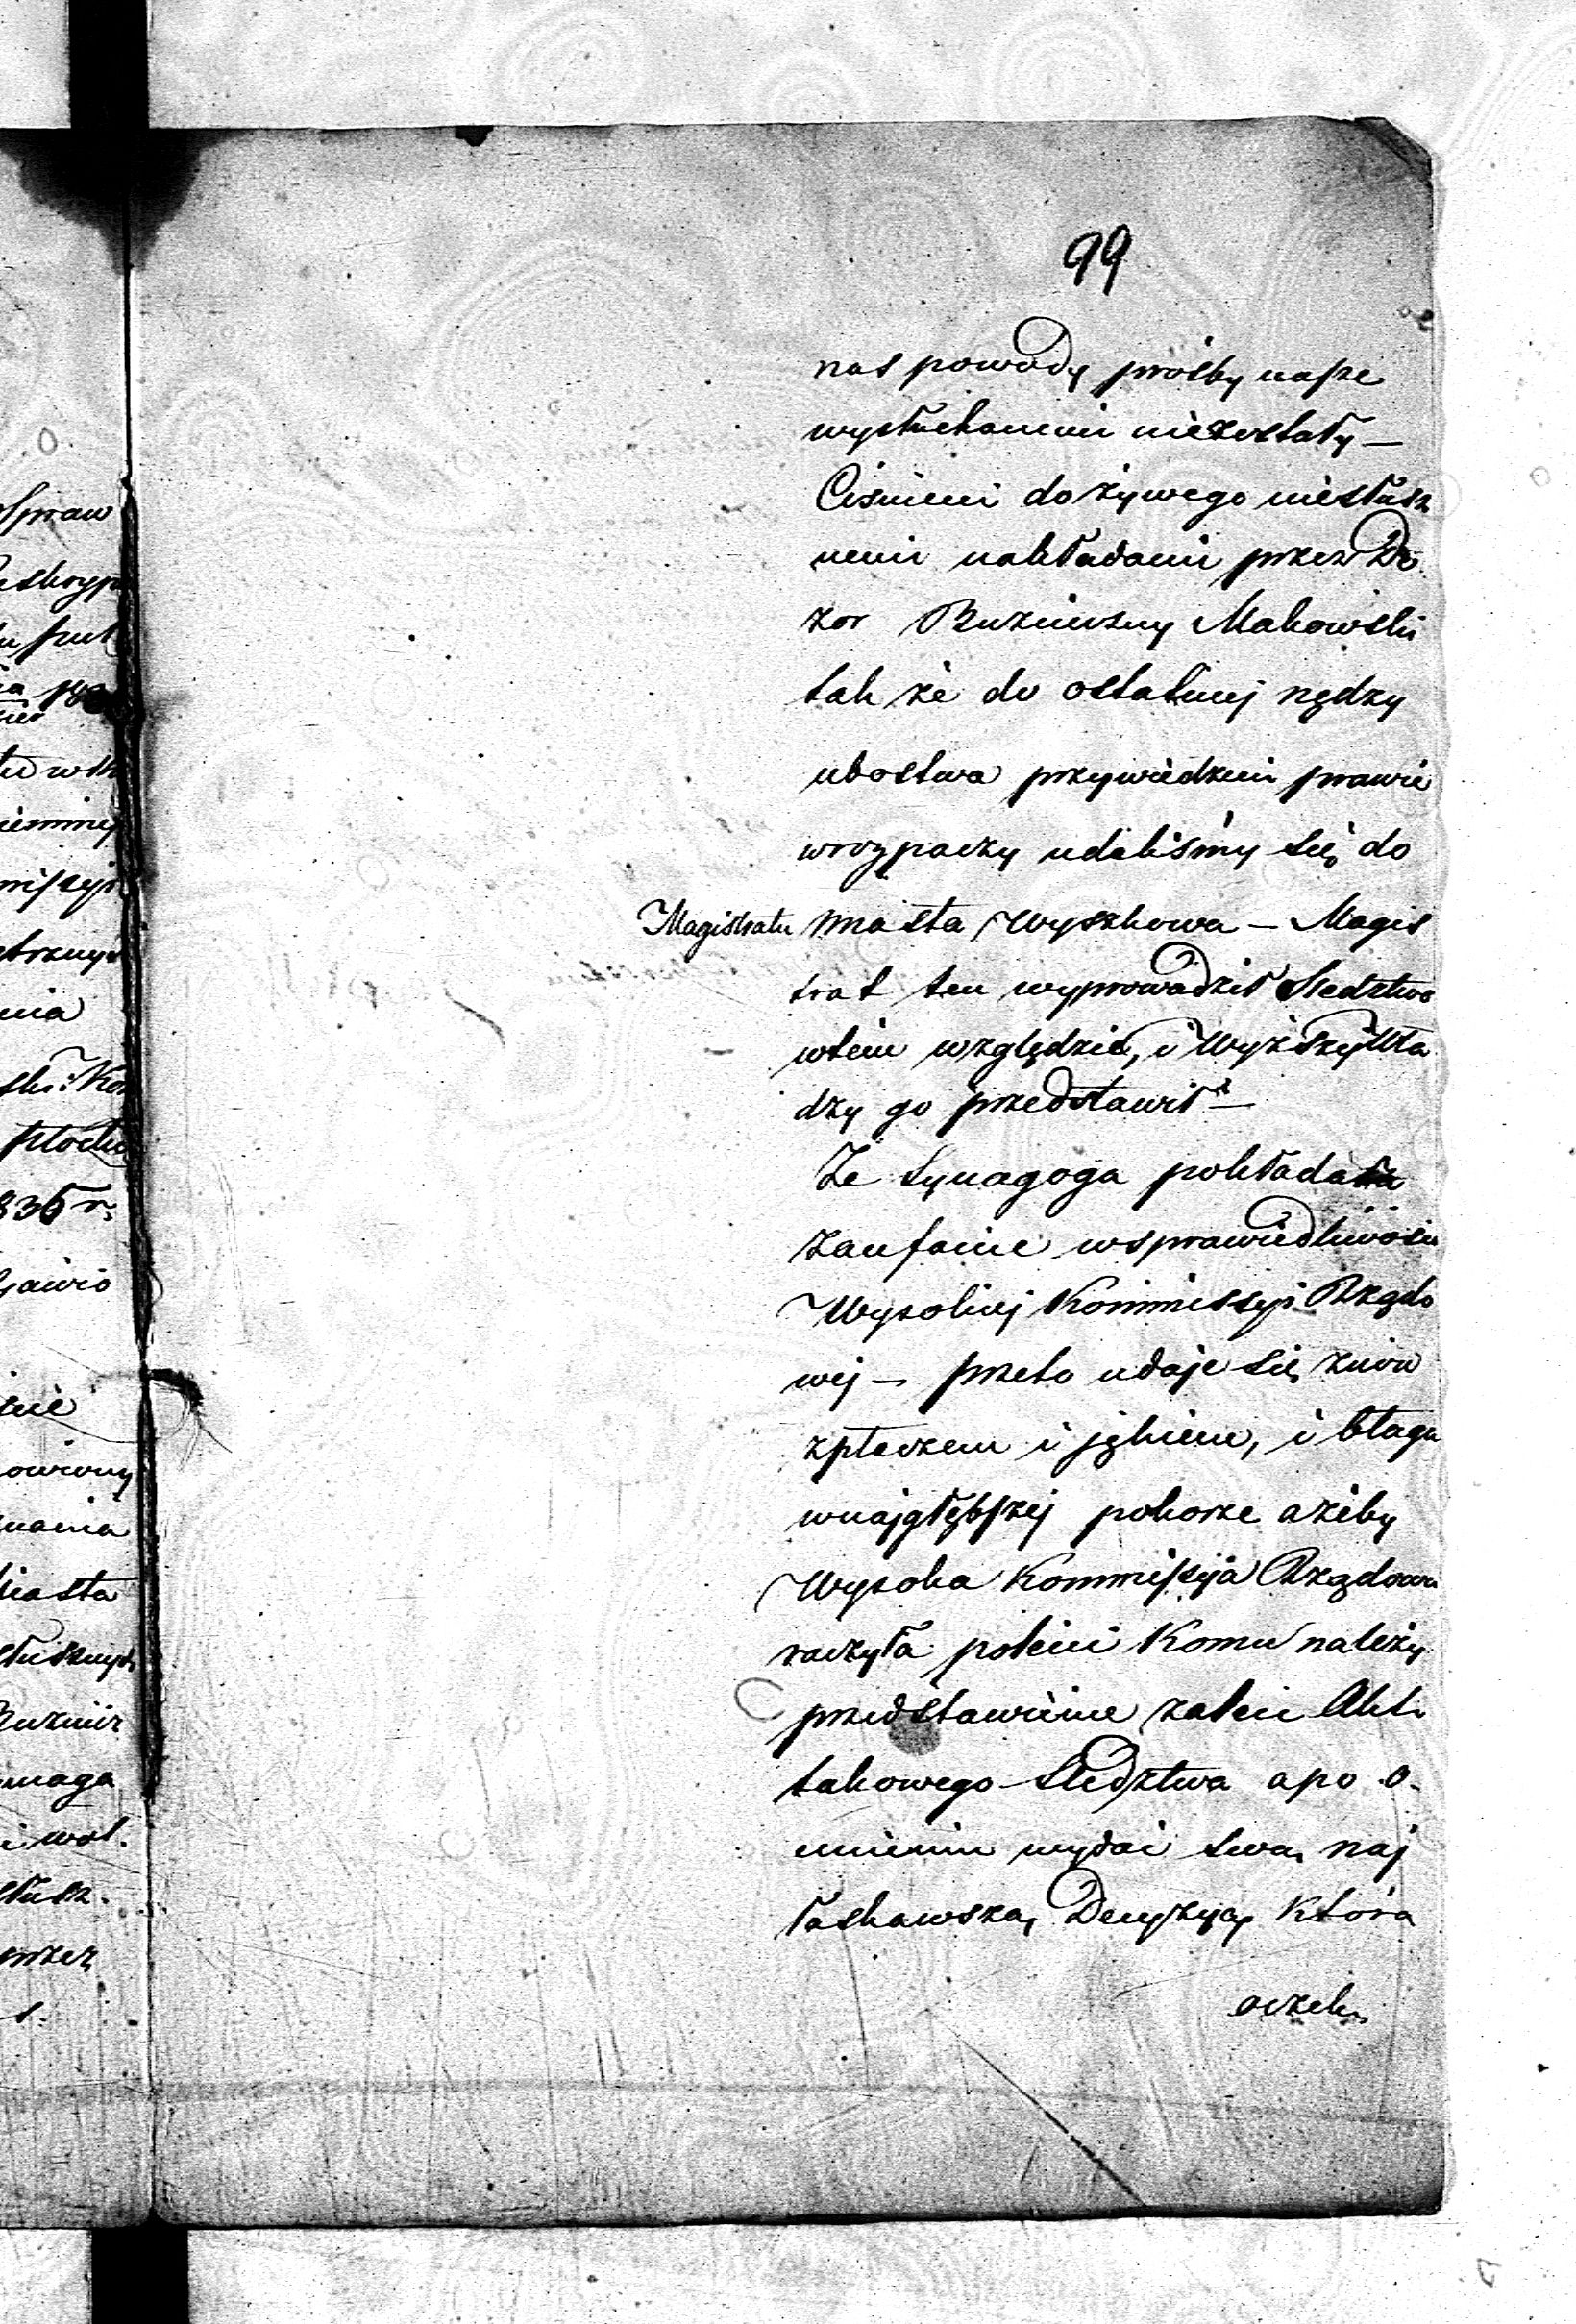 99
nas powody prośby nasze
wysłuchanemi niezostały —
Ciśnieni do żywego niesłusz
nemi nakładami przez Do
zor Bużniczny Makowski
tak że do ostatniej nędzy
ubostwa przywiedzeni prawie
wrozpaczy udaliśmy się do
Magistratu miasta Wyszkowa — Magis
trat ten wyprowadził Sledztwo
wtem względzie, i Wyższej Wła
dzy go przedstawił —
Ze Synagoga pokładała
zaufanie wsprawiedliwości
Wysokiej Kommissyi Rządo
wej — przeto udaje się znow
zpłaczem i jękiem, i błaga
wnajgłębszej pokorze ażeby
Wysoka Kommissyja Rządowa
raczyła polecić Komu należy
przedstawienie Akt
takowego Sledztwa apo o-
cenieniu wydać swą naj
łaskawszą Decyzyją, która
oczek
Spraw
1836 r:
nia
miasta
przez